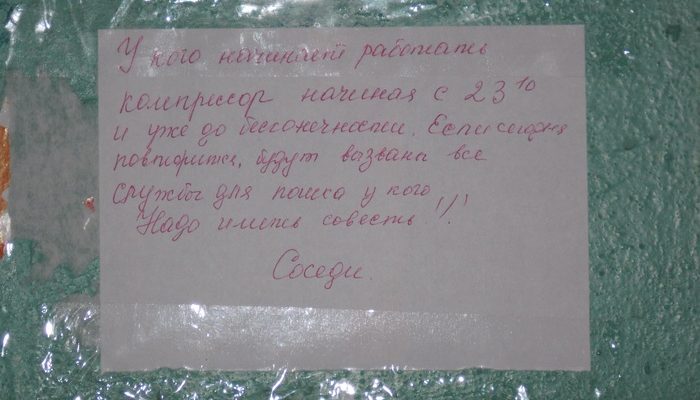 У кого начинает работать
компрессор начиная с 23¹⁰
и уже до бесконечности. Если сегодня
повторится, будут вызваны все
службы для поиска у кого
Надо иметь совесть!!!
Соседи.